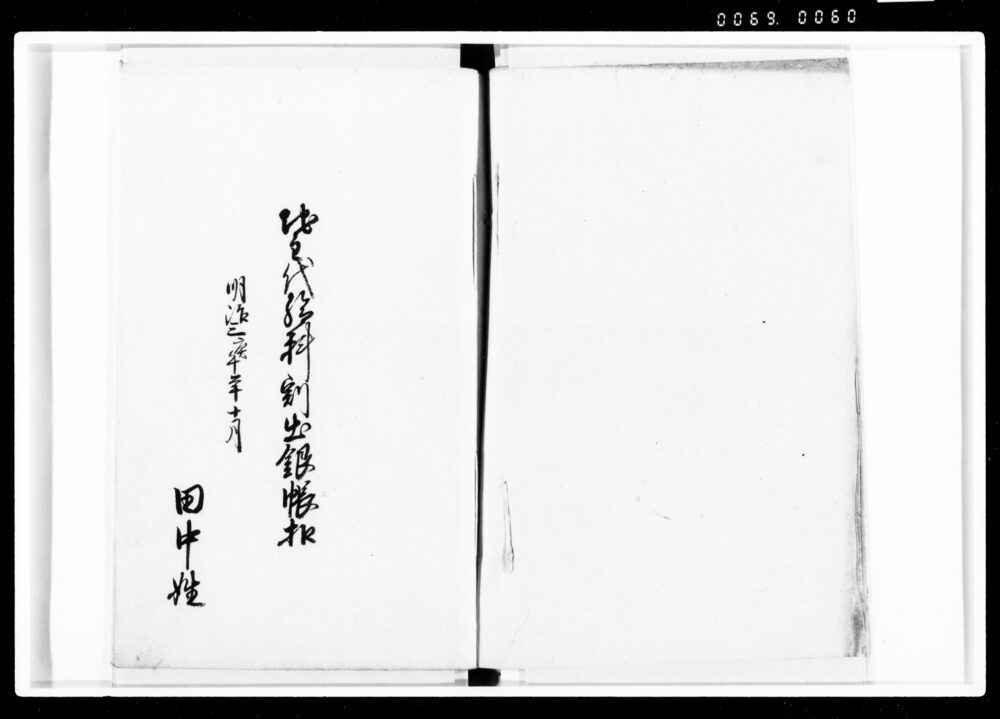 0069. 0060
地主代給料割出銀帳扣
明治三庚午年十月
田中姓